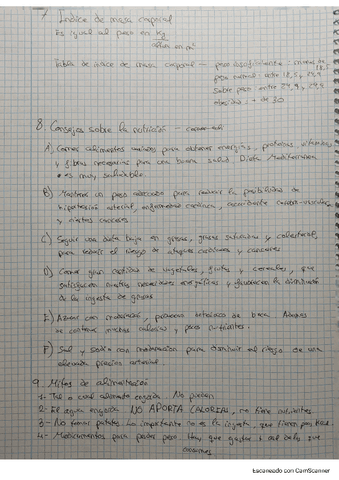 7. Indice de masa corporal
Es igual al peso en Kg
altura en m²
Tabla de indice de masa corporal — peso insuficiente: menos de 18,5
peso normal: entre 18,5 y 24,9
Sobre peso entre 24,9 y 29,9
obesidad: + de 30
8. Consejos sobre la nutrición —
A) Comer alimentos variados para obtener energía, proteinas, vitaminas
y fibras necesarias para una buena salud. Dieta Mediterranea
es muy saludable
B) Mantener un peso adecuado para reducir la posibilidad de
hipertesión arterial, enfermedades cardiacas, accidente cerebro-vascular
y ciertos canceres
C) Seguir una dieta baja en grasas, grasas saturadas y colesterol,
para reducir el riesgo de ataques cardiacos y canceres
D) Comer gran cantidad de vegetales, frutas y cereales, que
satisfagan nuestras necesidades energéticas y favorezcan la disminución
de la ingesta de grasas
E) Azucar con moderación, provoca deterioro de boca. Ademas
de contener muchas calorias y pocos nutrientes.
F) Sal y Sodio con moderación para disminuir el riesgo de una
elevada presión arterial.
9. Mitos de alimentación
1- Tal o cual alimento engorda. No
2- El agua engorda. NO APORTA CALORIAS, no tiene nutrientes
3- No tomar patatas. Lo importante es la ingesta, que tienen
4- Medicamentos para perder peso. Hay que gastar + del que
consumes
Escaneado con CamScanner